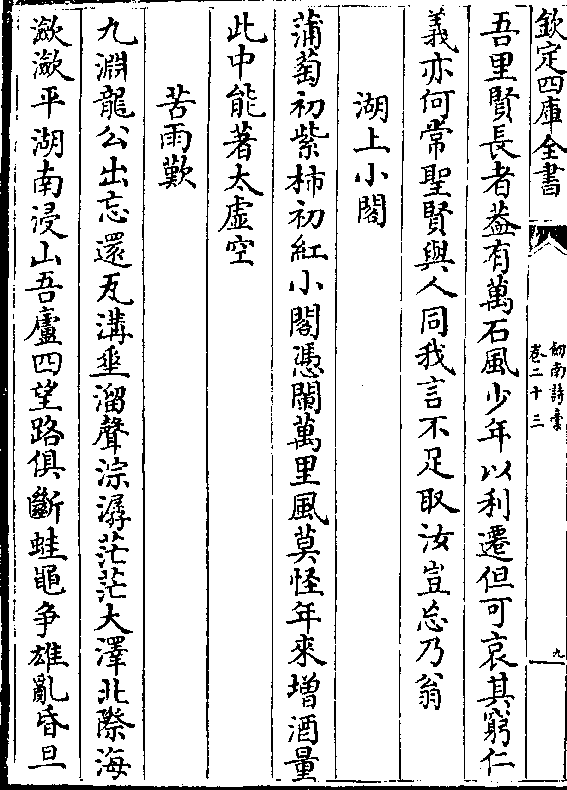 欽定四庫全書
劒南詩槀
卷二十三
九
吾里賢長者葢有萬石風少年以利遷但可哀其窮仁
義亦何常聖賢與人同我言不足取汝豈忘乃翁
湖上小閣
蒲萄初紫柿初紅小閣憑闌萬里風莫怪年來增酒量
此中能著太虛空
苦雨歎
九淵龍公出忘還瓦溝垂溜聲淙潺茫茫大澤北際海
瀲瀲平湖南浸山吾廬四望路俱斷蛙黽争雄亂昏旦